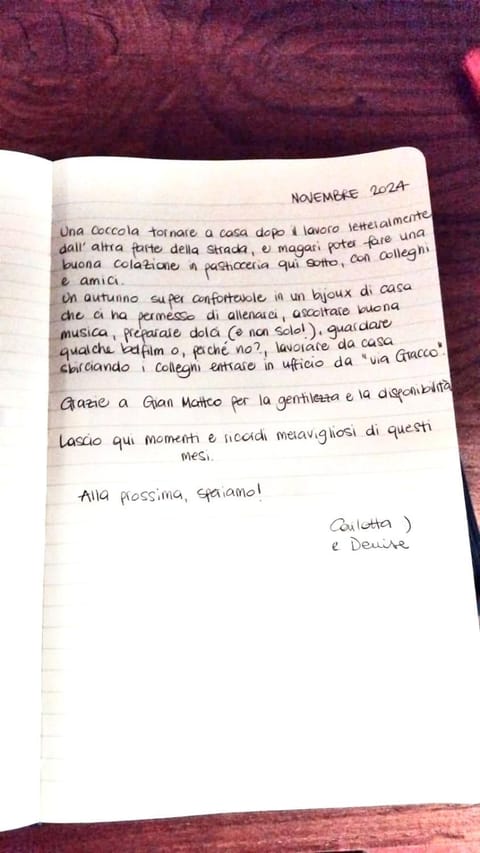 NOVEMBRE 2024
Una coccola tornare a casa dopo il lavoro letteralmente
dall'altra parte della strada, e magari poter fare una
buona colazione in pasticceria qui sotto, con colleghi
e amici.
Un autunno super confortevole in un bijoux di casa
che ci ha permesso di allenarci, ascoltare buona
musica, preparare dolci (e non solo!), guardare
qualche bel film o, perché no?, lavorare da casa
sbirciando i colleghi entrare in ufficio da "via Gracco".
Grazie a Gian Matteo per la gentilezza e la disponibilità
Lascio qui momenti e ricordi meravigliosi di questi
mesi.
Alla prossima, speriamo!
Carlotta )
e Denise